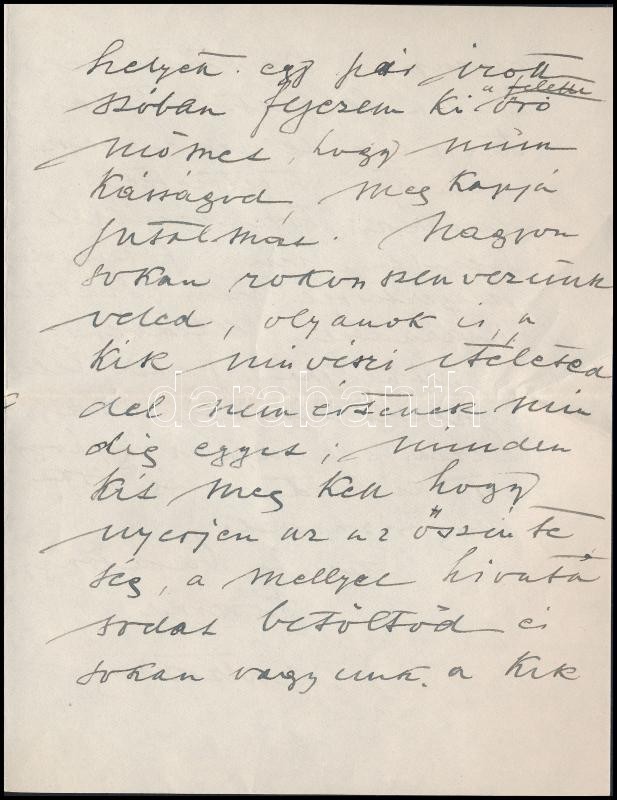 helyett egy pár írott
szóban fejezem ki a feletti örö
mömet, hogy mun
kásságod meg kapja
jutalmát. Nagyon
sokan rokonszenvezünk
veled, olyanok is, a
kik müvészi itéleted
del nem értenek min
dig egyet; minden
kit meg kell hogy
nyerjen az az öszinte
ség, a mellyel hivatá
sodat betöltöd és
sokan vagyunk a kik
darabanth